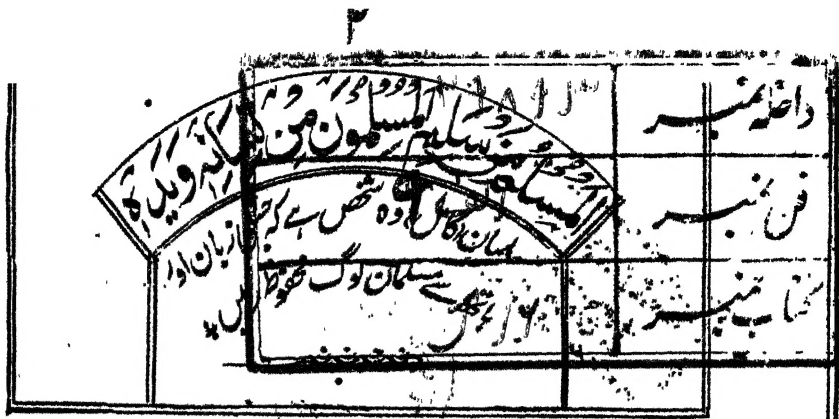 ۳
داخلہ نمبر
فن نمبر
کتاب نمبر
اَلْمُسْلِمُ مَنْ سَلِمَ الْمُسْلِمُونَ مِنْ لِسَانِهٖ وَيَدِهٖ
مسلمان کامل وہ شخص ہے کہ جس کی زبان اور
سے مسلمان لوگ محفوظ رہیں